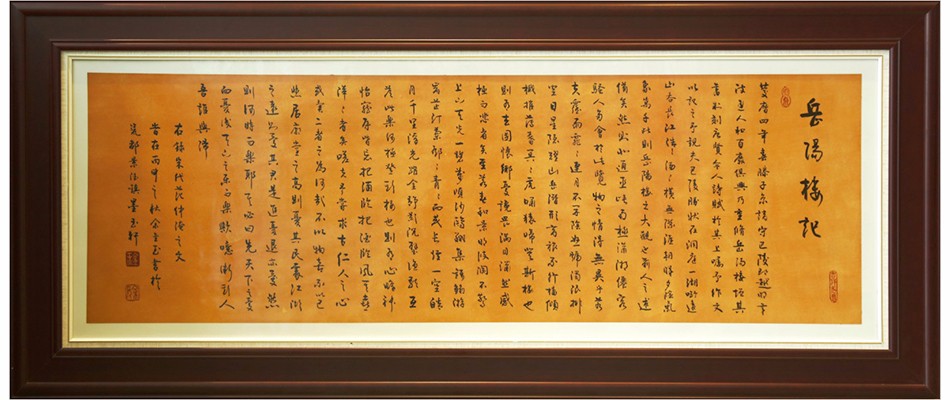 岳陽樓記
慶曆四年春滕子京謫守巴陵郡越明年
政通人和百廢俱興乃重修岳陽樓增其
舊制刻唐賢今人詩賦於其上囑予作文
以記之予觀夫巴陵勝狀在洞庭一湖銜遠
山吞長江浩浩湯湯橫無際涯朝暉夕陰氣
象萬千此則岳陽樓之大觀也前人之述
備矣然則北通巫峽南極瀟湘遷客
騷人多會於此覽物之情得無異乎若
夫霪雨霏霏連月不開陰風怒號濁浪排
空日星隱耀山岳潛形商旅不行檣傾
楫摧薄暮冥冥虎嘯猿啼登斯樓也
則有去國懷鄉憂讒畏譏滿目蕭然感
極而悲者矣至若春和景明波瀾不驚
上下天光一碧萬頃沙鷗翔集錦鱗游
泳岸芷汀蘭郁郁青青而或長煙一空皓
月千里浮光躍金靜影沉璧漁歌互
答此樂何極登斯樓也則有心曠神
怡寵辱皆忘把酒臨風其喜
洋洋者矣嗟夫予嘗求古仁人之心
或異二者之為何哉不以物喜不以己
悲居廟堂之高則憂其民處江湖
之遠則憂其君是進亦憂退亦憂然
則何時而樂耶其必曰先天下之憂
而憂後天下之樂而樂歟噫微斯人
吾誰與歸
右錄宋代范仲淹之文
丙申之秋書於
瓷都景德鎮墨玉軒